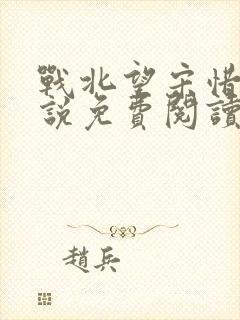 戰北望宋惜
說免費閱讀
趙兵